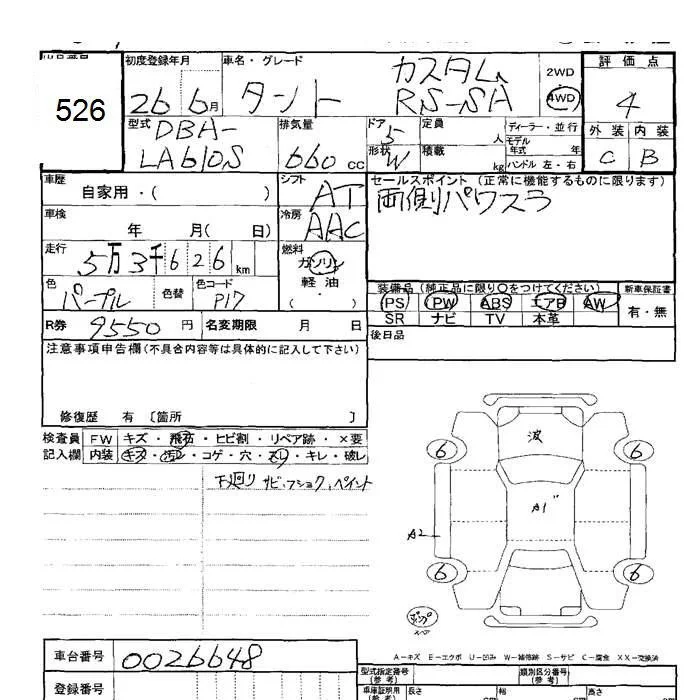 526
初度登録年月
26 6月
車名・グレード
タント
カスタム
RS-SA
2WD
4WD
評価点
4
外装 内装
C B
型式
DBA-
LA610S
排気量
660 CC
ドア
5
形状
W
定員
人
積載
kg
ディーラー・並行
モデル
年式 年
ハンドル 左・右
車歴
自家用・( )
シフト
AT
セールスポイント(正常に機能するものに限ります)
両側パワスラ
車検
年 月( 日)
冷房
AAC
走行
5万3千626km
燃料
ガソリン
軽油
( ・ )
色
パープル
色替
色コード
P17
装備名(純正品に限り○をつけてください)
PS PW ABS エアB AW
SR ナビ TV 本革
新車保証書
有・無
R券 9550円
名変期限 月 日
後日品
注意事項申告欄(不具合内容等は具体的に記入して下さい)
修復歴 有〔箇所 〕
検査員
記入欄
FW キズ・飛石・ヒビ割・リペア跡・×要
内装 キズ・汚レ・コゲ・穴・スレ・キレ・破レ
下廻り サビ、フショク、ペイント
波
6
6
A1
A2
6
6
スペア
A-キズ E-エクボ U-凹み W-補修跡 S-サビ C-腐食 XX-交換済
車台番号 0026648
登録番号
型式指定番号
(参考)
類別区分番号
(参考)
車庫証明用
(参考)
長さ
幅
高さ